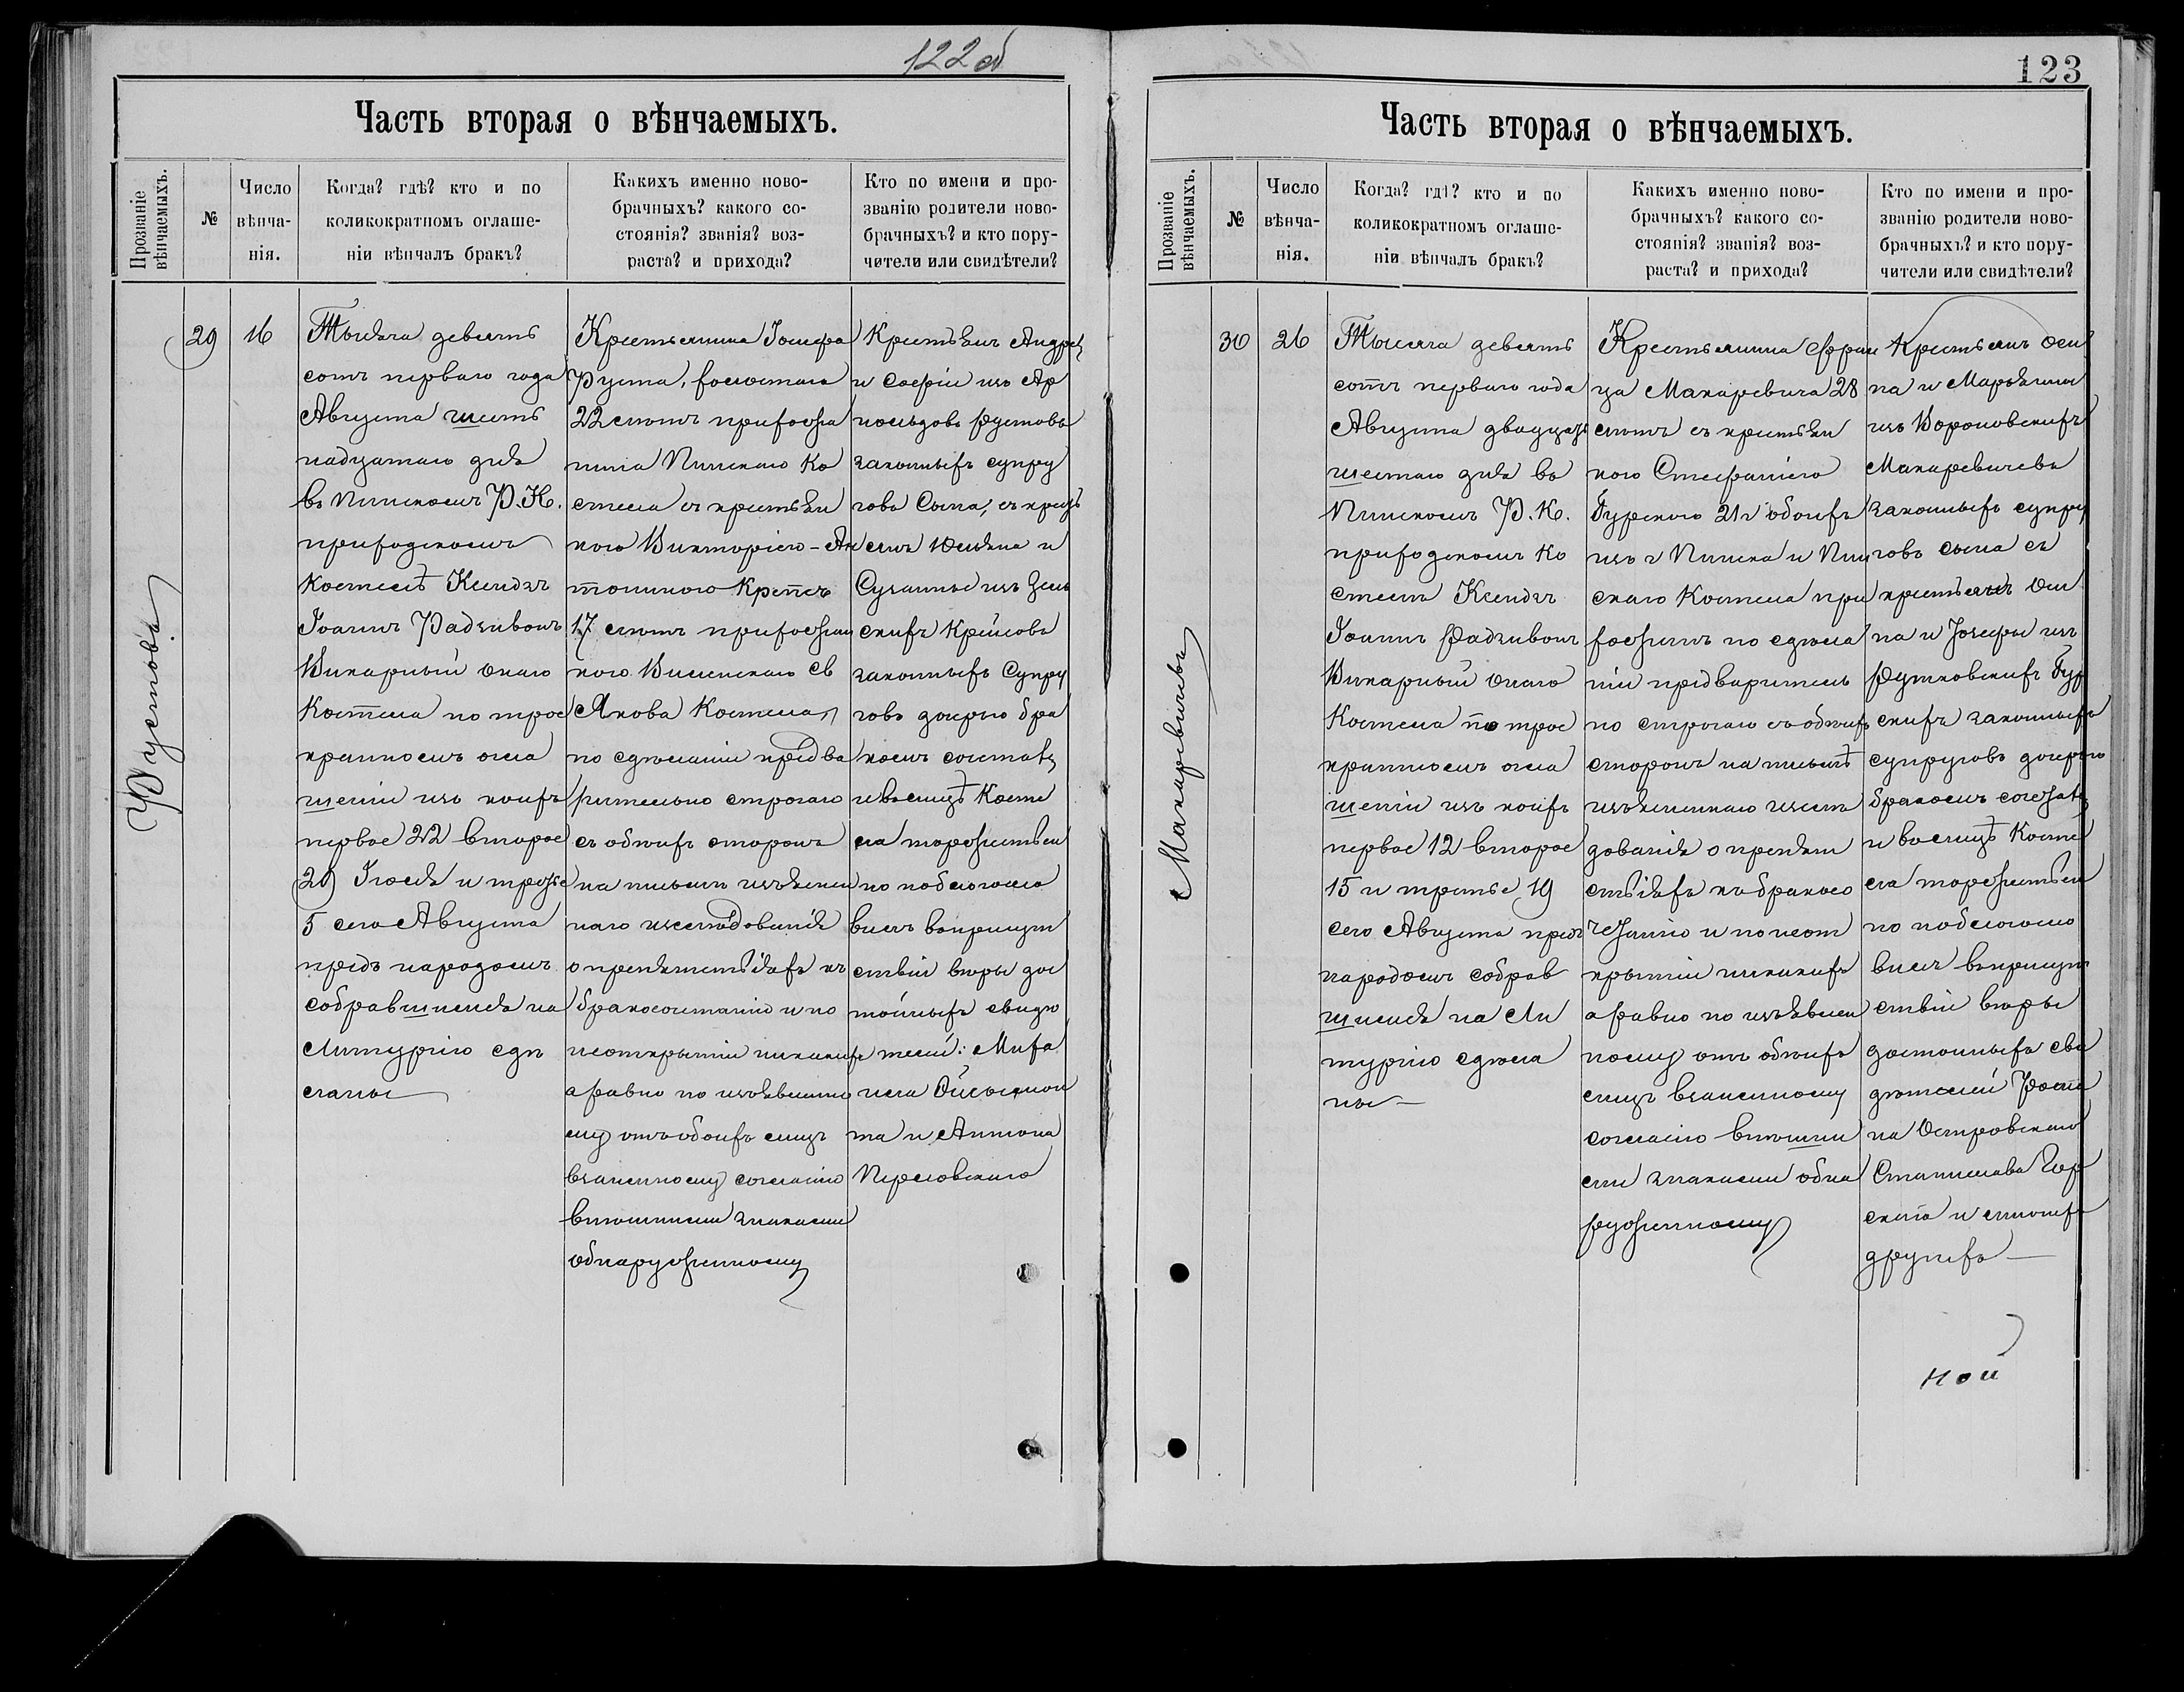 122 об
Часть вторая о вѣнчаемыхъ.
Прозваніе вѣнчаемыхъ.
№
Число вѣнча-
нія.
Когда? гдѣ? кто и по
коликократномъ оглаше-
ніи вѣнчалъ бракъ?
Какихъ именно ново-
брачныхъ? какого со-
стоянія? званія? воз-
раста? и прихода?
Кто по имени и про-
званію родители ново-
брачныхъ? и кто пору-
чители или свидѣтели?
Рустовъ
29
16
Тысяча девять
сотъ перваго года
Августа шест
надцатаго дня
въ Пинскомъ Р. К.
приходскомъ
костелѣ Ксендзъ
Іоаннъ Радзивонъ
Викарный онаго
Костела по трое
кратномъ огла
шеніи изъ коихъ
первое 22 второе
29 Іюля и третье
5 сего Августа
предъ народомъ
собравшимся на
Литургію сдѣ
ланы
Крестьянина Іосифа
Руста, холостаго
22 лѣтъ прихожа
нина Пинскаго Ко
стела съ крестьян
кою Викторіею-Ан
тониною Крепсъ
17 лѣтъ прихожан
кою Виленскаго Св
Якова Костела,
по сдѣланіи предва
рительно строгаго
съ обоихъ сторонъ
на письмѣ изъяснен
наго изслѣдованія
о препятствіяхъ къ
бракосочетанію и по
неоткрытіи никакихъ
а равно по изъявленно
му отъ обоихъ лицъ
взаимному согласію
внѣшними знаками
обнаруженному
Крестьянъ Андрея
и Софіи изъ Ар
Рустовъ
законныхъ супру
говъ Сына, съ крест
Юльяна и
Сузанны изъ
законныхъ Супру
говъ дочерью бра
комъ сочеталъ
и въ лицѣ Косте
ла торжествен
но поблагосло
вилъ въ присут
ствіи вѣры дос
тойныхъ свидѣ
телей: Миха
ила
та и Антона
123
Часть вторая о вѣнчаемыхъ.
Прозваніе вѣнчаемыхъ.
№
Число вѣнча-
нія.
Когда? гдѣ? кто и по
коликократномъ оглаше-
ніи вѣнчалъ бракъ?
Какихъ именно ново-
брачныхъ? какого со-
стоянія? званія? воз-
раста? и прихода?
Кто по имени и про-
званію родители ново-
брачныхъ? и кто пору-
чители или свидѣтели?
Макаревичъ
30
26
Тысяча девять
сотъ перваго года
Августа двадцать
шестаго дня въ
Пинскомъ Р. К.
приходскомъ Ко
стелѣ Ксендзъ
Іоаннъ Радзивонъ
Викарный онаго
Костела по трое
кратномъ огла
шеніи изъ коихъ
первое 12 второе
15 и третье 19
сего Августа предъ
народомъ собрав
шимся на Ли
тургію сдѣла
ны
Крестьянина Фран
ца Макаревича 28
лѣтъ съ крестьян
кою Стефаніею
Гурскою 21 г обоихъ
изъ г Пинска и Пин
скаго Костела при
хожанъ по сдѣла
ніи предваритель
но строгаго съ обоихъ
сторонъ на письмѣ
изъясненнаго изслѣ
дованія о препят
ствіяхъ къ бракосо
четанію и по неот
крытіи никакихъ
а равно по изъявлен
ному отъ обоихъ
лицъ взаимному
согласію внѣшни
ми знаками обна
руженному
Крестьянъ Оси
па и Марьянны
изъ Вороновскихъ
Макаревичевъ
законныхъ супру
говъ сына съ
крестьянъ Оси
па и Іозефы изъ
Рутковскихъ Гур
скихъ законныхъ
супруговъ дочерью
бракомъ сочеталъ
и въ лицѣ Косте
ла торжествен
но поблагосло
вилъ въ присут
ствіи вѣры
достойныхъ сви
дѣтелей
на Островскаго
Станислава Гур
скаго и многихъ
другихъ
ной